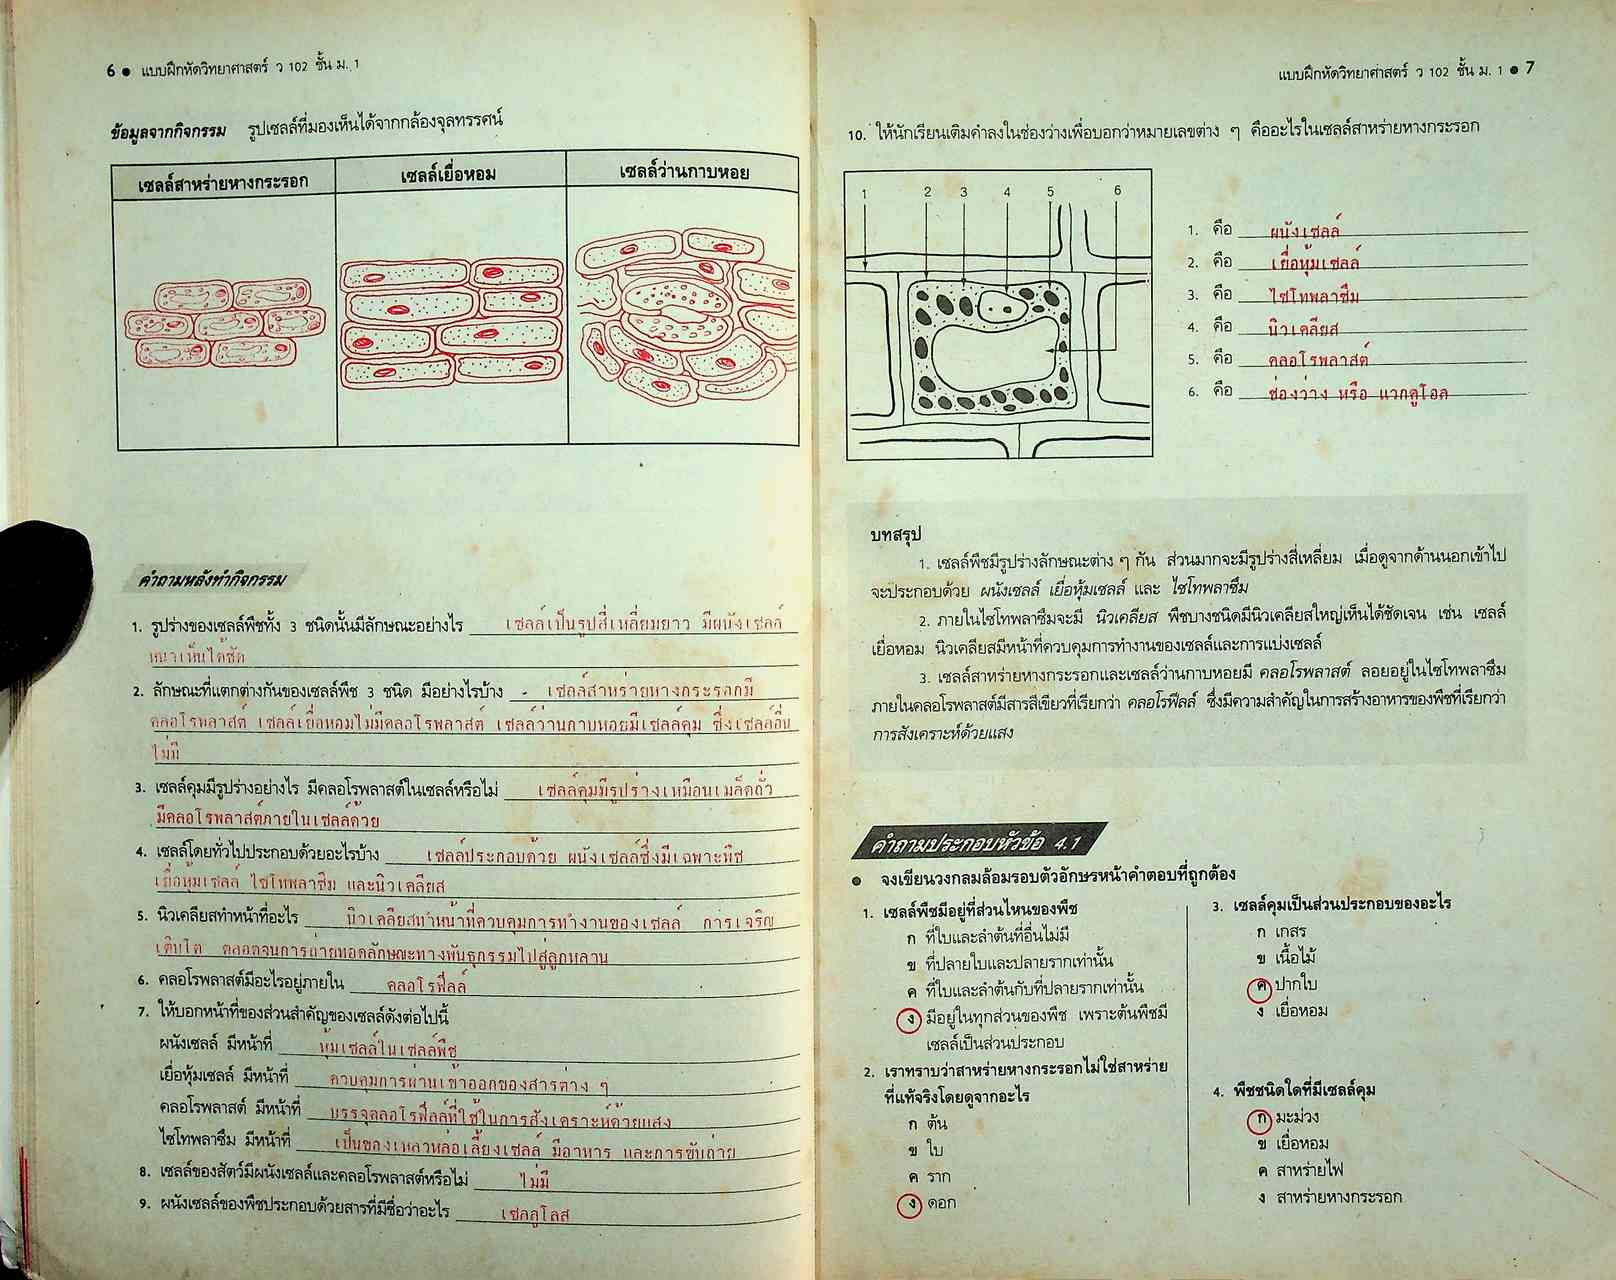 6 ● แบบฝึกหัดวิทยาศาสตร์ ว 102 ชั้น ม. 1
ข้อมูลจากกิจกรรม รูปเซลล์ที่มองเห็นได้จากกล้องจุลทรรศน์
เซลล์สาหร่ายหางกระรอก เซลล์เยื่อหอม เซลล์ว่านกาบหอย
คำถามหลังทำกิจกรรม
1. รูปร่างของเซลล์พืชทั้ง 3 ชนิดนั้นมีลักษณะอย่างไร เซลล์เป็นรูปสี่เหลี่ยมยาว มีผนังเซลล์
หนาเห็นได้ชัด
2. ลักษณะที่แตกต่างกันของเซลล์พืช 3 ชนิด มีอย่างไรบ้าง - เซลล์สาหร่ายหางกระรอกมี
คลอโรพลาสต์ เซลล์เยื่อหอมไม่มีคลอโรพลาสต์ เซลล์ว่านกาบหอยมีเซลล์คุม ซึ่งเซลล์อื่น
ไม่มี
3. เซลล์คุมมีรูปร่างอย่างไร มีคลอโรพลาสต์ในเซลล์หรือไม่ เซลล์คุมมีรูปร่างเหมือนเมล็ดถั่ว
มีคลอโรพลาสต์ภายในเซลล์ด้วย
4. เซลล์โดยทั่วไปประกอบด้วยอะไรบ้าง เซลล์ประกอบด้วย ผนังเซลล์ซึ่งมีเฉพาะพืช
เยื่อหุ้มเซลล์ ไซโทพลาซึม และนิวเคลียส
5. นิวเคลียสทำหน้าที่อะไร นิวเคลียสทำหน้าที่ควบคุมการทำงานของเซลล์ การเจริญ
เติบโต ตลอดจนการถ่ายทอดลักษณะทางพันธุกรรมไปสู่ลูกหลาน
6. คลอโรพลาสต์มีอะไรอยู่ภายใน คลอโรฟีลล์
7. ให้บอกหน้าที่ของส่วนสำคัญของเซลล์ดังต่อไปนี้
ผนังเซลล์ มีหน้าที่ หุ้มเซลล์ในเซลล์พืช
เยื่อหุ้มเซลล์ มีหน้าที่ ควบคุมการผ่านเข้าออกของสารต่าง ๆ
คลอโรพลาสต์ มีหน้าที่ บรรจุคลอโรฟีลล์ที่ใช้ในการสังเคราะห์ด้วยแสง
ไซโทพลาซึม มีหน้าที่ เป็นของเหลวหล่อเลี้ยงเซลล์ มีอาหาร และการขับถ่าย
8. เซลล์ของสัตว์มีผนังเซลล์และคลอโรพลาสต์หรือไม่ ไม่มี
9. ผนังเซลล์ของพืชประกอบด้วยสารที่มีชื่อว่าอะไร เซลลูโลส
แบบฝึกหัดวิทยาศาสตร์ ว 102 ชั้น ม. 1 ● 7
10. ให้นักเรียนเติมคำลงในช่องว่างเพื่อบอกว่าหมายเลขต่าง ๆ คืออะไรในเซลล์สาหร่ายหางกระรอก
1 2 3 4 5 6
1. คือ ผนังเซลล์
2. คือ เยื่อหุ้มเซลล์
3. คือ ไซโทพลาซึม
4. คือ นิวเคลียส
5. คือ คลอโรพลาสต์
6. คือ ช่องว่าง หรือ แวคคูโอล
บทสรุป
1. เซลล์พืชมีรูปร่างลักษณะต่าง ๆ กัน ส่วนมากจะมีรูปร่างสี่เหลี่ยม เมื่อดูจากด้านนอกเข้าไป
จะประกอบด้วย ผนังเซลล์ เยื่อหุ้มเซลล์ และ ไซโทพลาซึม
2. ภายในไซโทพลาซึมจะมี นิวเคลียส พืชบางชนิดมีนิวเคลียสใหญ่เห็นได้ชัดเจน เช่น เซลล์
เยื่อหอม นิวเคลียสมีหน้าที่ควบคุมการทำงานของเซลล์และการแบ่งเซลล์
3. เซลล์สาหร่ายหางกระรอกและเซลล์ว่านกาบหอยมี คลอโรพลาสต์ ลอยอยู่ในไซโทพลาซึม
ภายในคลอโรพลาสต์มีสารสีเขียวที่เรียกว่า คลอโรฟีลล์ ซึ่งมีความสำคัญในการสร้างอาหารของพืชที่เรียกว่า
การสังเคราะห์ด้วยแสง
คำถามประกอบหัวข้อ 4.1
● จงเขียนวงกลมล้อมรอบตัวอักษรหน้าคำตอบที่ถูกต้อง
1. เซลล์พืชมีอยู่ที่ส่วนไหนของพืช
ก ที่ใบและลำต้นที่อื่นไม่มี
ข ที่ปลายใบและปลายรากเท่านั้น
ค ที่ใบและลำต้นกับที่ปลายรากเท่านั้น
ง มีอยู่ในทุกส่วนของพืช เพราะต้นพืชมี
เซลล์เป็นส่วนประกอบ
2. เราทราบว่าสาหร่ายหางกระรอกไม่ใช่สาหร่าย
ที่แท้จริงโดยดูจากอะไร
ก ต้น
ข ใบ
ค ราก
ง ดอก
3. เซลล์คุมเป็นส่วนประกอบของอะไร
ก เกสร
ข เนื้อไม้
ค ปากใบ
ง เยื่อหอม
4. พืชชนิดใดที่มีเซลล์คุม
ก มะม่วง
ข เยื่อหอม
ค สาหร่ายไฟ
ง สาหร่ายหางกระรอก